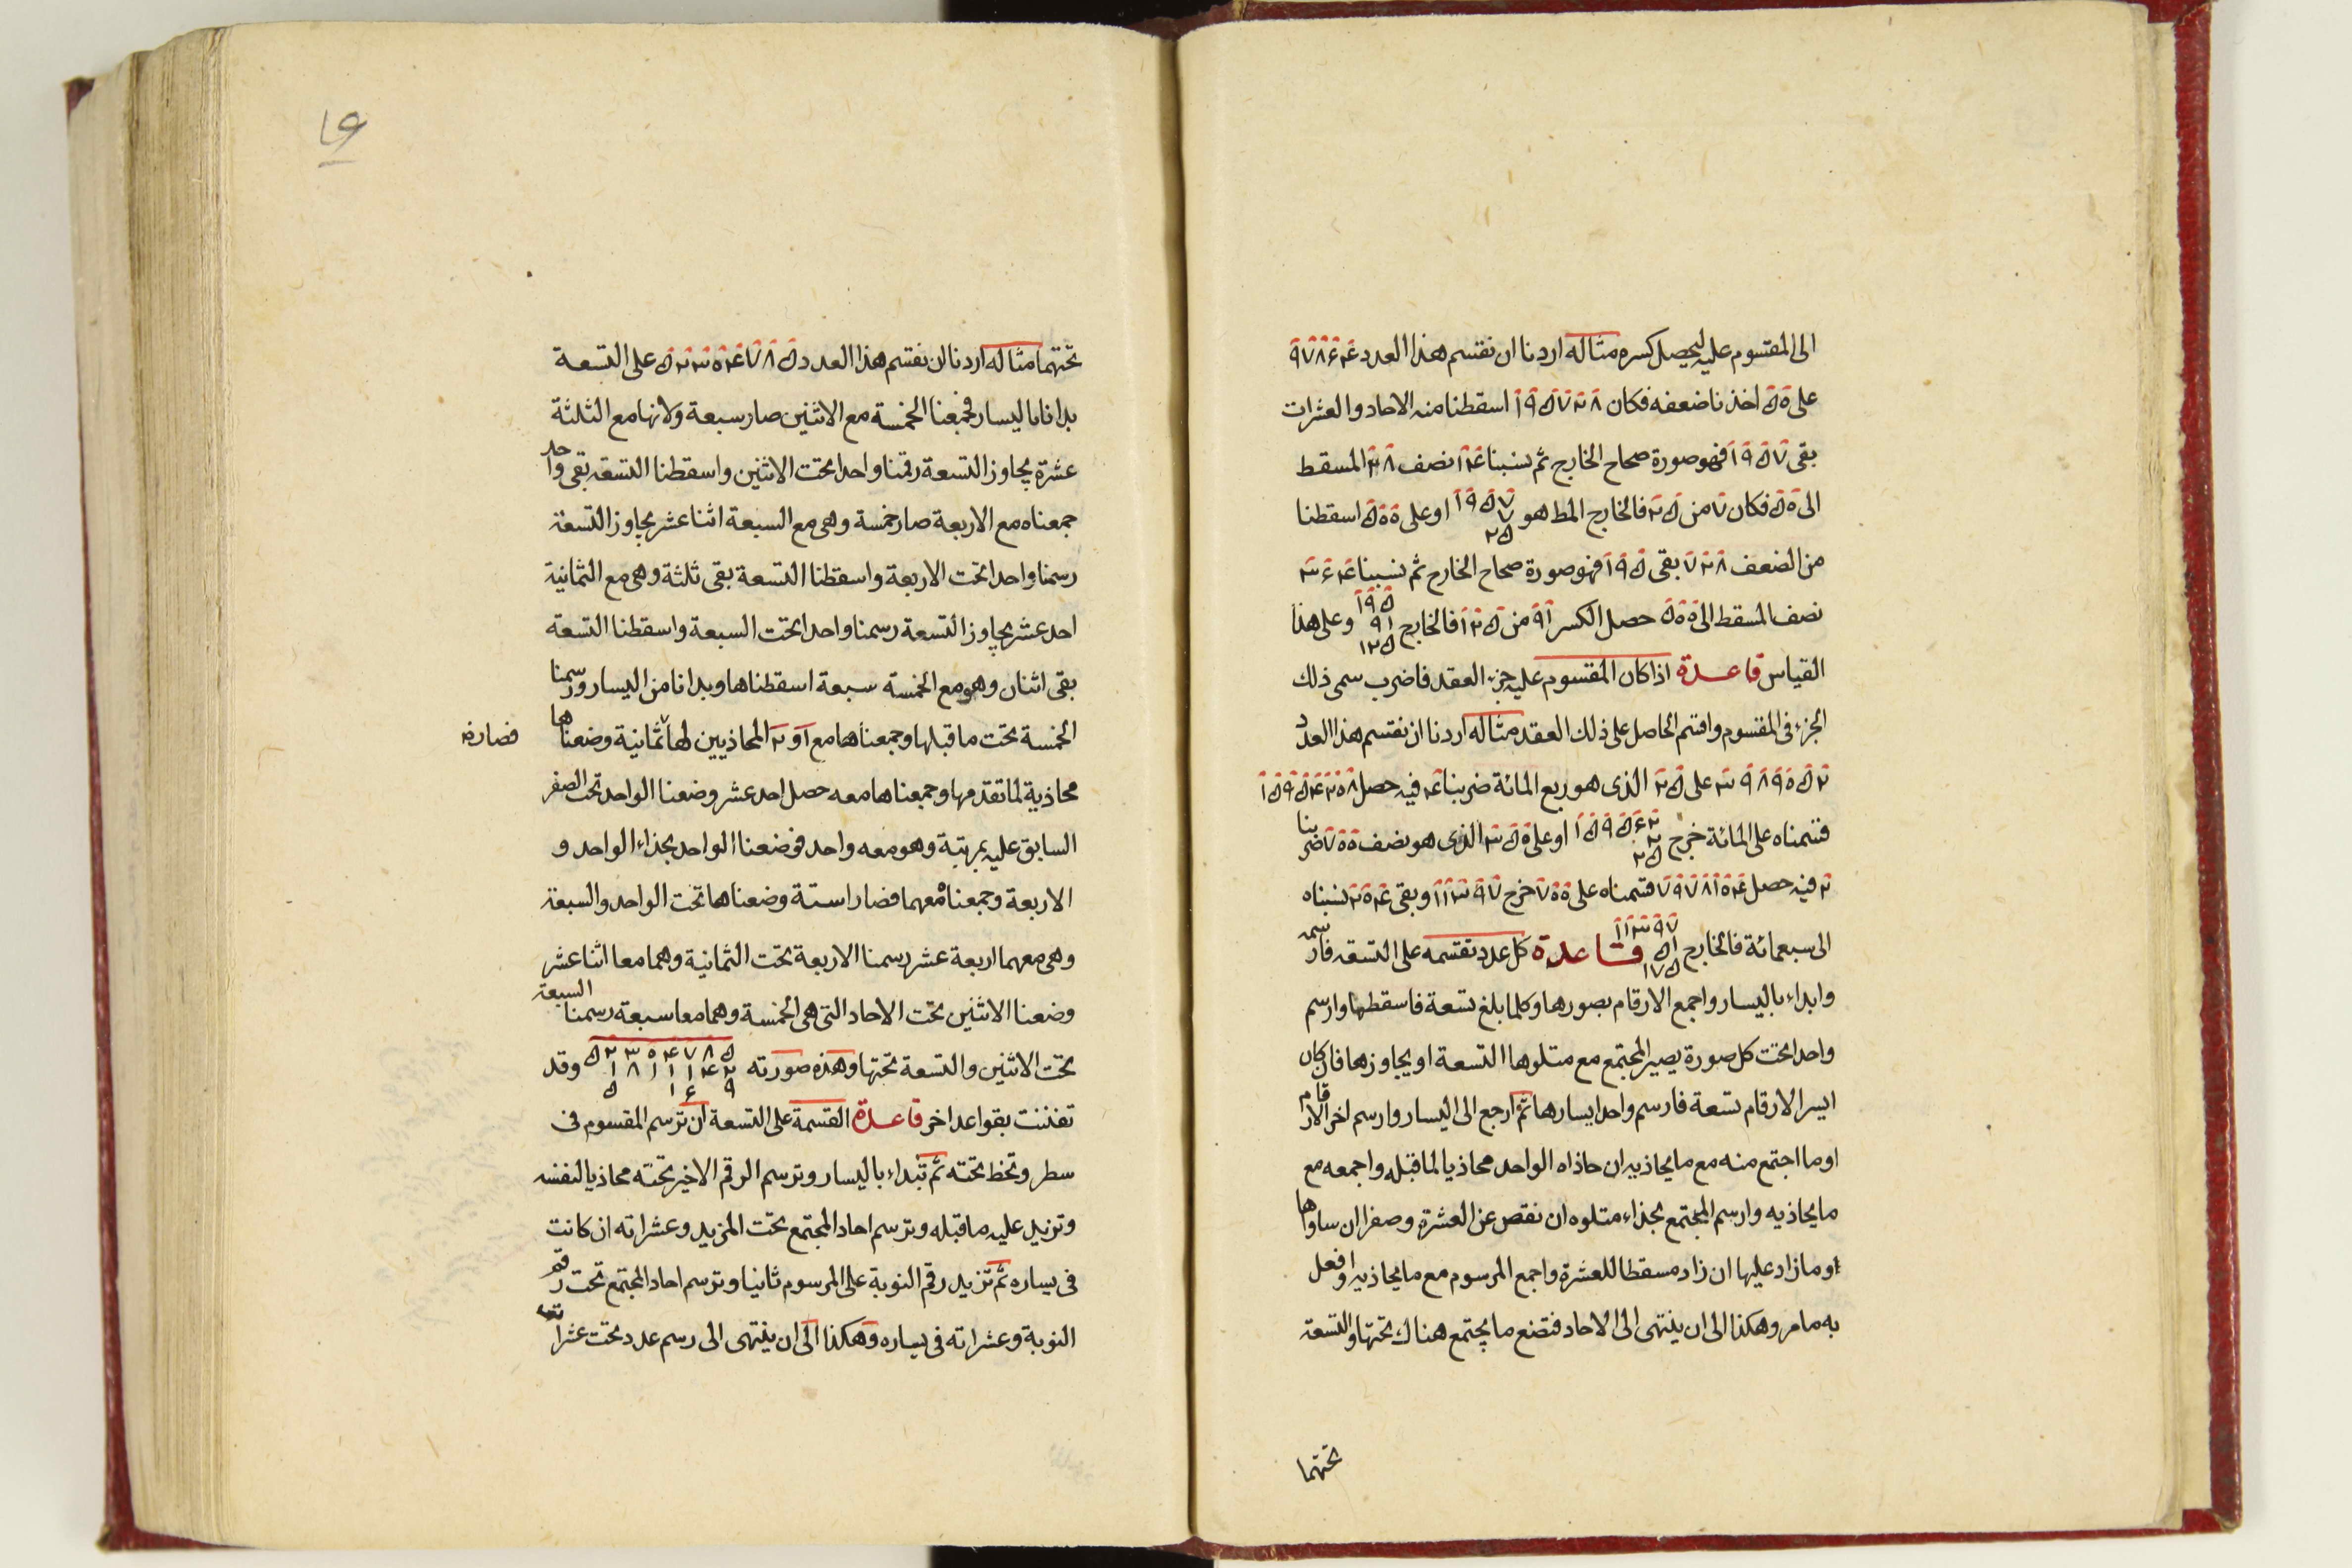 الى المقسوم عليه ليحصل كسره مثاله اردنا ان نقسم هذا العدد ٩٧٨۶۴
على ۵۰ اخذنا ضعفه فكان ١٩۵٧٢٨ اسقطنا منه الاحاد والعشرات
بقى ١٩۵٧ فهو صورة صحاح الخارج ثم نسبنا ١۴ نصف ٢٨ المسقط
الى ۵۰ فكان ٧ من ٢۵ فالخارج المط هو ١٩۵٧ ٧ ٢۵ او على ۵۰۰ اسقطنا
من الضعف ٧٢٨ بقى ١٩۵ فهو صورة صحاح الخارج ثم نسبنا ٣۶۴
نصف المسقط الى ۵۰۰ حصل الكسر ٩١ من ١٢۵ فالخارج ١٩۵ ٩١ ١٢۵ وعلى هذا
القياس قاعدة اذا كان المقسوم عليه جزء العقد فاضرب سمى ذلك
الجزء فى المقسوم واقسم الحاصل على ذلك العقد مثاله اردنا ان نقسم هذا العدد
٣٩٨٩۰۵٢ على ٢۵ الذى هو ربع المائة ضربنا ۴ فيه حصل ١۵٩۵۶٢۰٨
قسمناه على المائة خرج ١۵٩۵۶٢ ٢ ٢۵ او على ٣۵۰ الذى هو نصف ٧۰۰ ضربنا
٢ فيه حصل ٧٩٧٨١۰۴ قسمناه على ٧۰۰ خرج ١١٣٩٧ وبقى ٢۰۴ نسبناه
الى سبعمائة فالخارج ١١٣٩٧ ۵١ ١٧۵ قاعدة كل عدد تقسمه على التسعة فارسمه
وابداء باليسار واجمع الارقام بصورها وكلما بلغ تسعة فاسقطها وارسم
واحدا تحت كل صورة يصير المجتمع مع متلوها التسعة او يجاوزها فان كان
ايسر الارقام تسعة فارسم واحدا يسارها ثم ارجع الى اليسار وارسم اخر الارقام
او ما اجتمع منه مع ما يحاذيه ان حاذاه الواحد محاذيا لما قبله واجمعه مع
ما يحاذيه وارسم المجتمع بحذاء متلوه ان نقص عن العشرة وصفرا ان ساواها
او ما زاد عليها ان زاد مسقطا للعشرة واجمع المرسوم مع ما يحاذيه وافعل
به ما مر وهكذا الى ان ينتهى الى الاحاد فتضع ما يجتمع هناك تحتها والتسعة
تحتهما
تحتهما مثاله اردنا ان نقسم هذا العدد ۵٢٣۰۴٧٨۵ على التسعة
بدانا باليسار فجمعنا الخمسة مع الاثنين صار سبعة ولانها مع الثلثة
عشرة يجاوز التسعة رقمنا واحدا تحت الاثنين واسقطنا التسعة بقى واحد
جمعناه مع الاربعة صار خمسة وهى مع السبعة اثنا عشر يجاوز التسعة
رسمنا واحدا تحت الاربعة واسقطنا التسعة بقى ثلثة وهى مع الثمانية
احد عشر يجاوز التسعة رسمنا واحدا تحت السبعة واسقطنا التسعة
بقى اثنان وهو مع الخمسة سبعة اسقطناها وبدانا من اليسار ورسمنا
الخمسة تحت ما قبلها وجمعناها مع ١ و ٢ المحاذيين لها ثمانية وضعناها
فصار
محاذية لما تقدمها وجمعناها معه حصل احد عشر وضعنا الواحد تحت الصفر
السابق عليه بمرتبة وهو معه واحد فوضعنا الواحد بحذاء الواحد و
الاربعة وجمعناه معهما فصار ستة وضعناها تحت الواحد والسبعة
وهى معهما اربعة عشر رسمنا الاربعة تحت الثمانية وهما معا اثنا عشر
وضعنا الاثنين تحت الاحاد التى هى الخمسة وهما معا سبعة رسمنا السبعة
تحت الاثنين والتسعة تحتها وهذه صورته ۵٢٣۰۴٧٨۵ وقد
تفننت بقواعد اخر قاعدة القسمة على التسعة ان ترسم المقسوم فى
سطر وتخط تحته ثم تبداء باليسار وترسم الرقم الاخير تحته محاذيا لنفسه
وتزيد عليه ما قبله وترسم احاد المجتمع تحت المزيد وعشراته ان كانت
فى يساره ثم تزيد رقم النوبة على المرسوم ثانيا وترسم احاد المجتمع تحت رقم
النوبة وعشراته فى يساره وهكذا الى ان ينتهى الى رسم عدد تحت عشراته